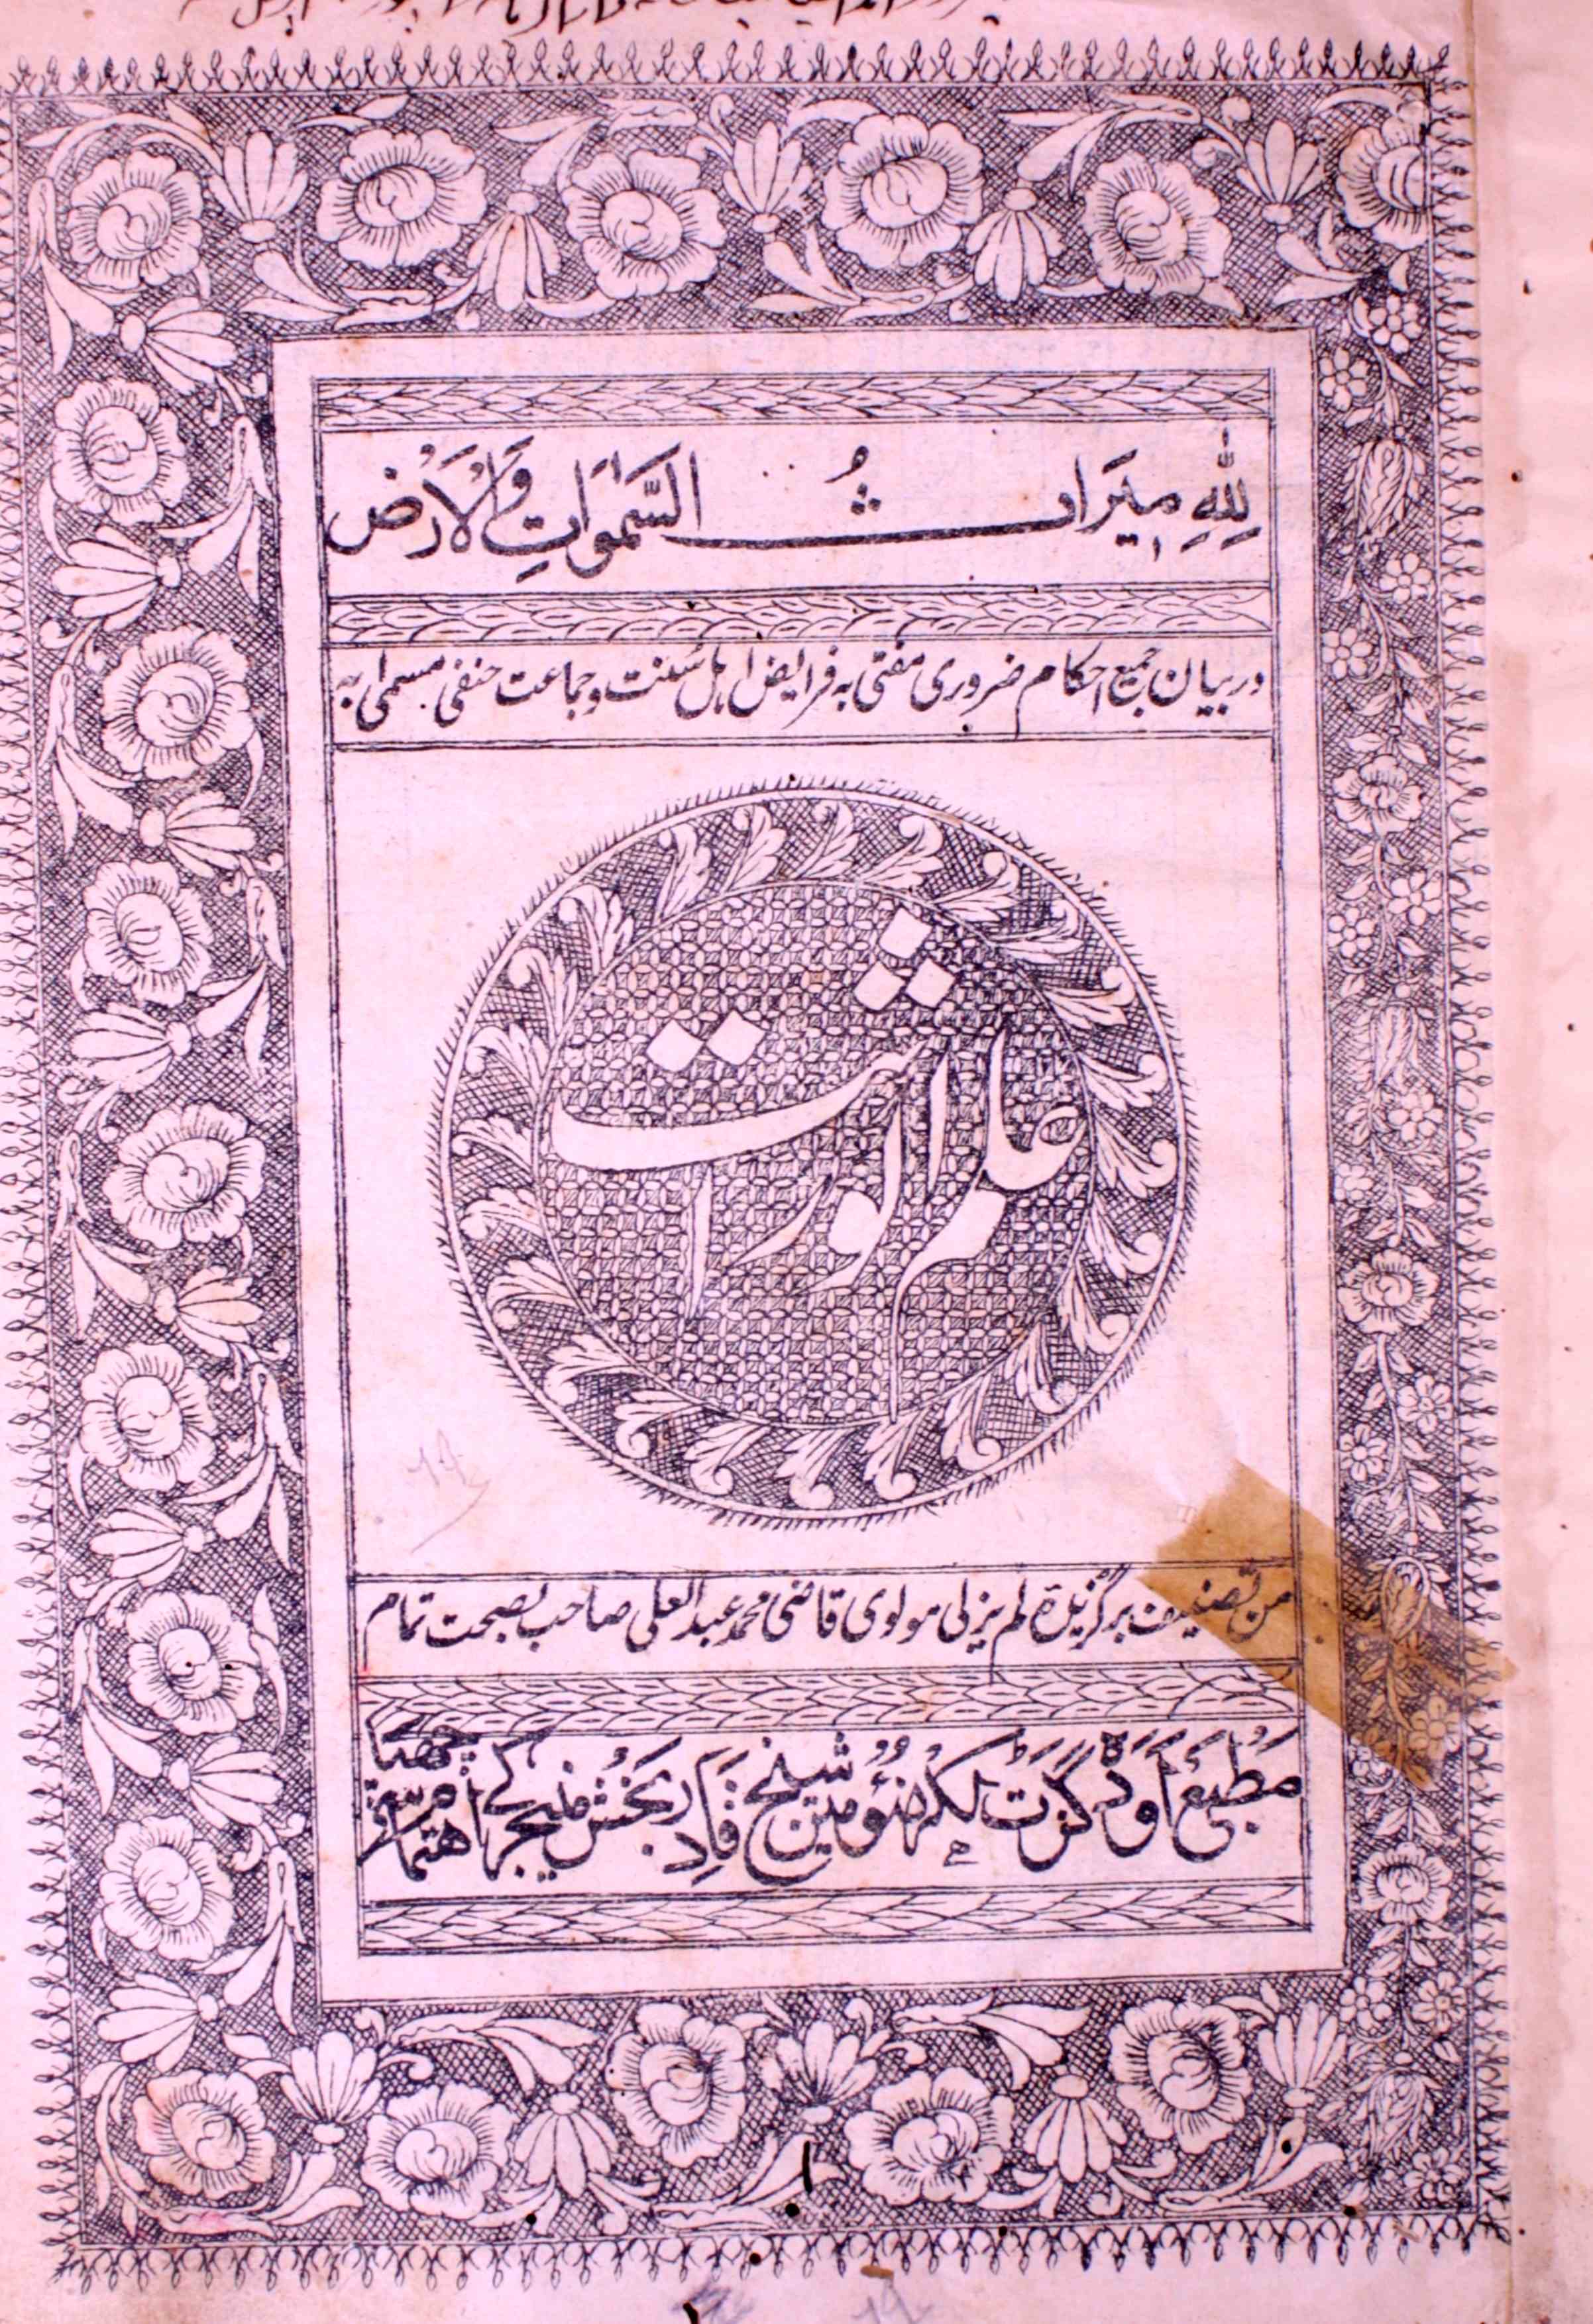 لِلّٰهِ مِيرَاثُ السَّمٰوَاتِ وَالْاَرْضِ
در بیان جمیع احکام ضروری مفتی به فرایض اہل سنت وجماعت حنفی مسمی به
علم الوراثت
من تصنیف برگزیدۀ لم یزلی مولوی قاضی محمد عبدالعلی صاحب بصحت تمام
مطبع اودہ گزٹ لکھنؤ مین شیخ قادر بخش منیجر کے اهتمام سے چھپا